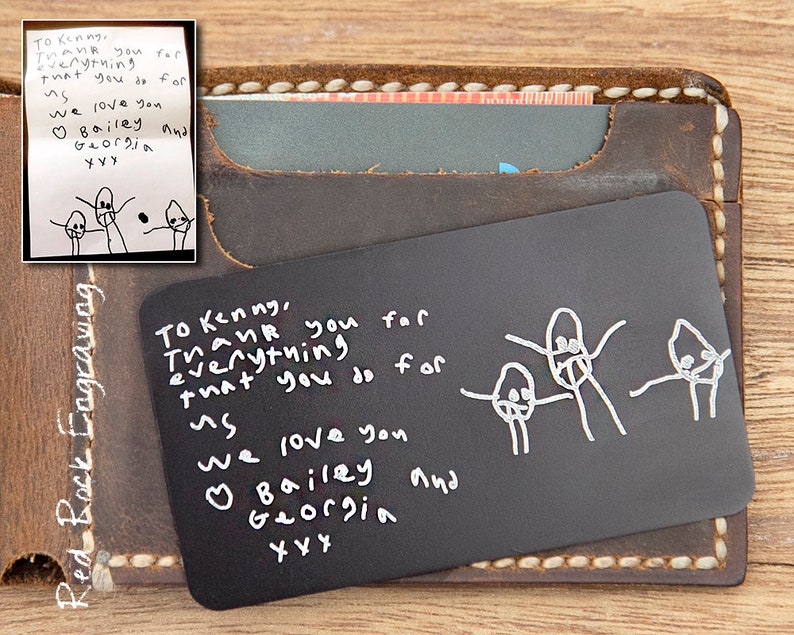 To Kenny,
Thank you for
everything
that you do for
us
we love you
♡ Bailey and
Georgia
xxx
To Kenny,
Thank you for
everything
that you do for
us
we love you
♡ Bailey and
Georgia
xxx
Red Rock Engraving